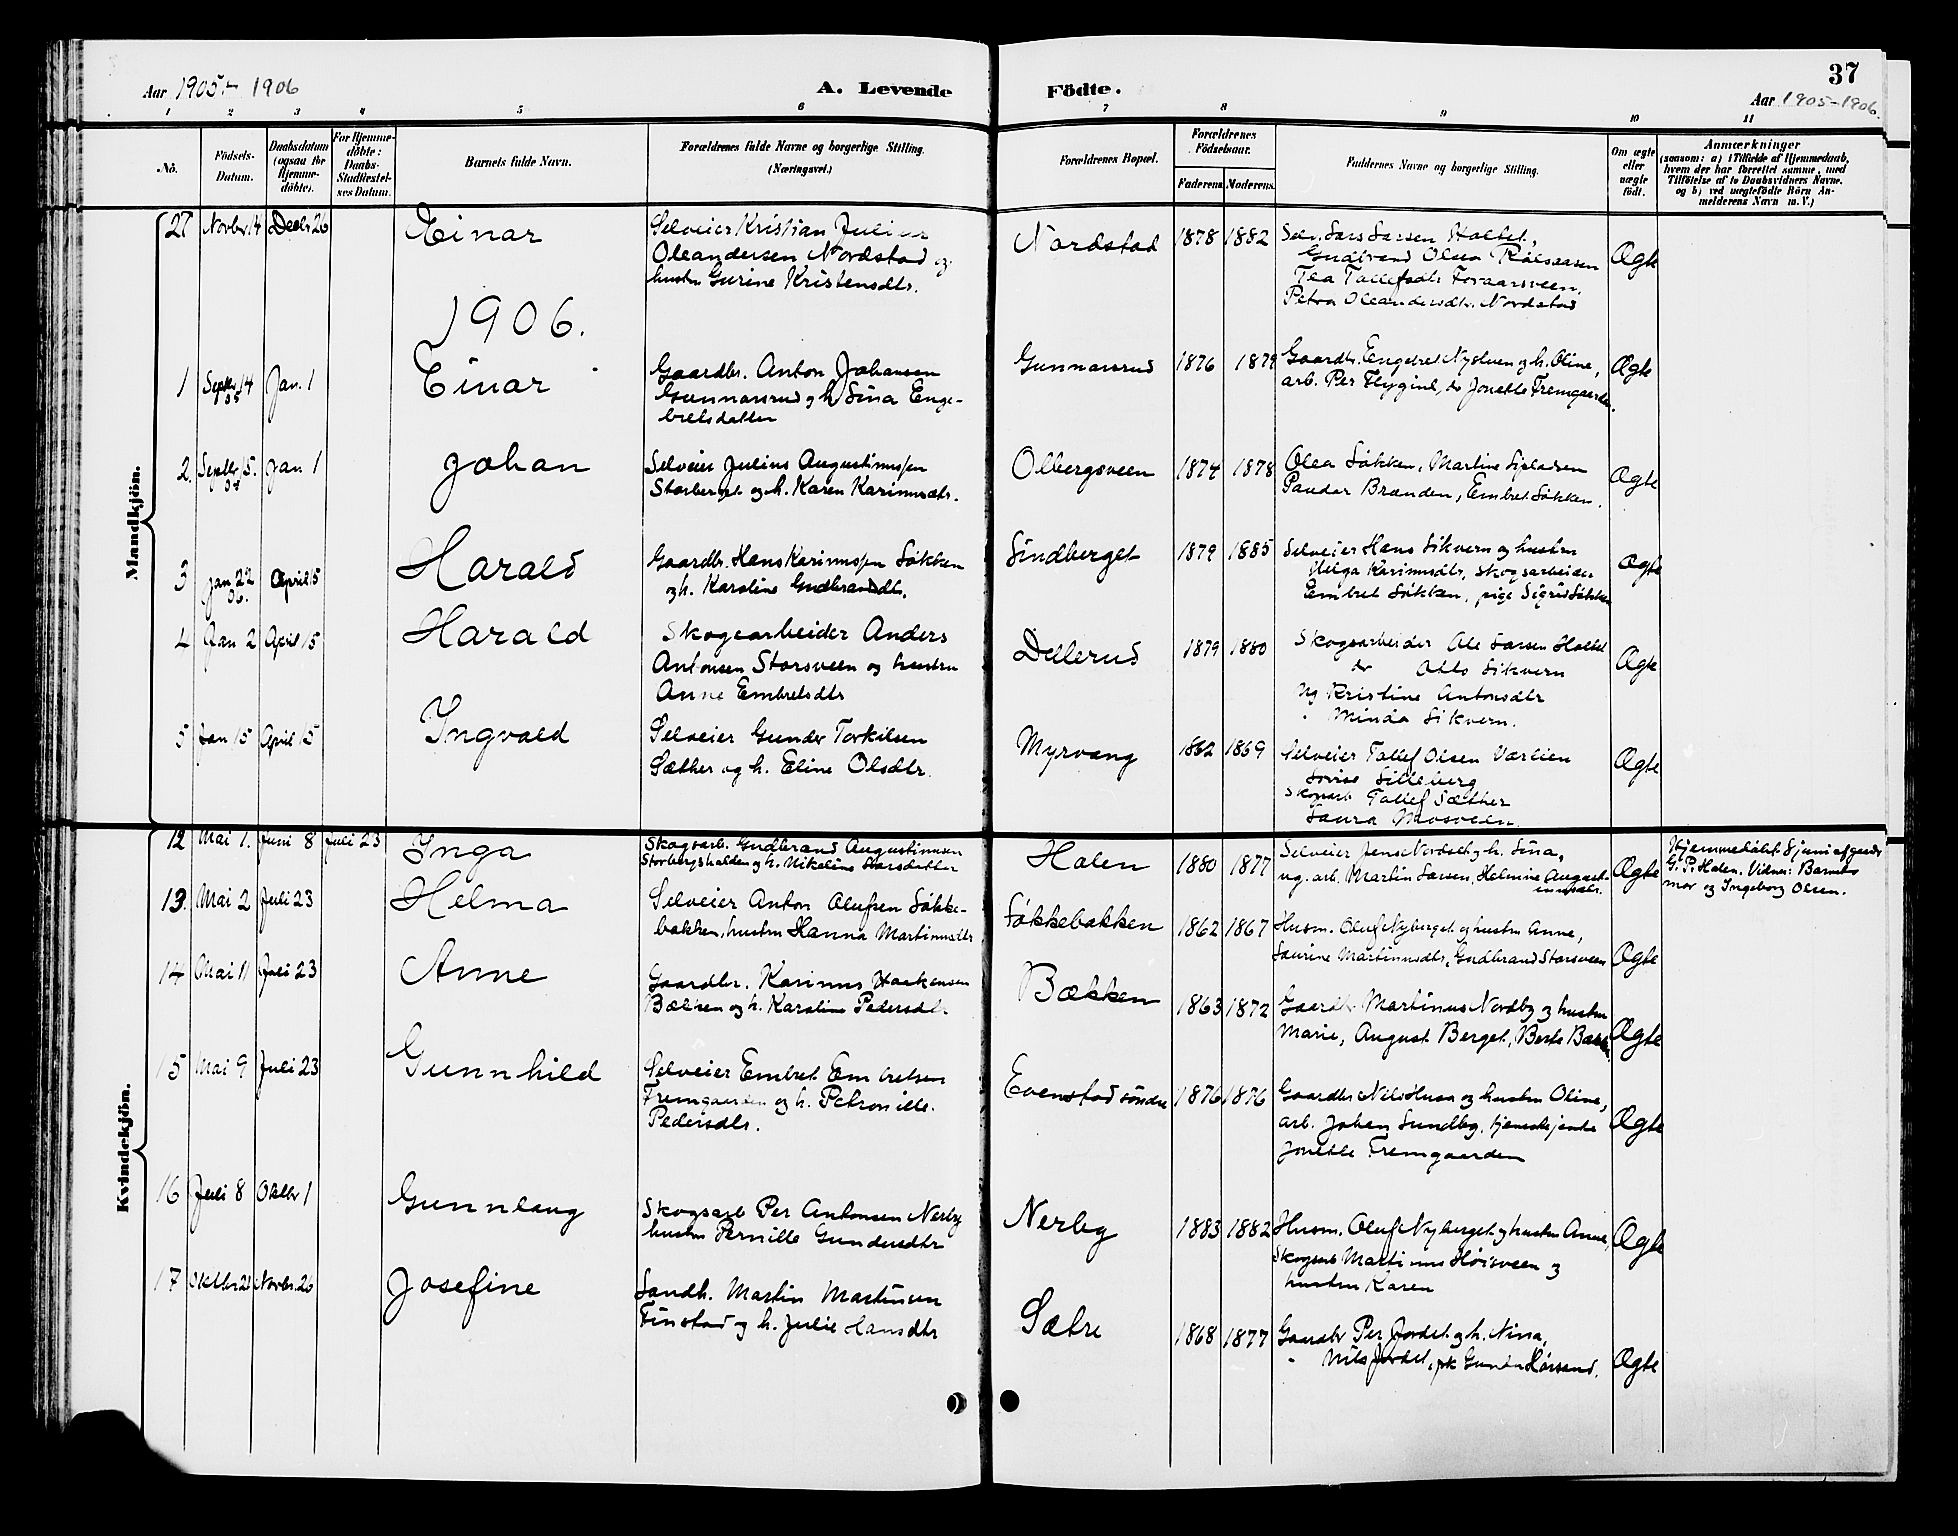 Aar 1905 - 1906
A. Levende
Födte.
37
Aar 1905-1906.
1 2 3 4 5 6 7 8 9 10 11
No.
Födsels-
Datum.
Daabsdatum
(ogsaa for
Hjemme-
döbte).
For Hjemme-
döbte:
Daabs-
Stadfæstel-
ses Datum.
Barnets fulde Navn.
Forældrenes fulde Navne og borgerlige Stilling.
(Næringsvei.)
Forældrenes Bopæl.
Forældrenes
Födselsaar.
Faderens Moderens
Faddernes Navne og borgerlige Stilling.
Om ægte
eller
uægte
födt.
Anmærkninger
(saasom: a) i Tilfælde af Hjemmedaab,
hvem der har forrettet samme, med
Tilföielse af to Daabsvidners Navne,
og b) ved uægtefödte Börn An-
melderens Navn m. V.)
Mandkjön.
27 Novbr 14 Decbr 26 Einar
Selveier Kristian Julius
Oleandersen Nordstad og
hustru Gurine Kristensdtr.
Nordstad 1878 1882
Selv. Lars Larsen Holtet,
Gudbrand Olsen
Tea Tallefsdtr
Petra Oleandersdtr. Nordstad
Ægte
1906.
1 Septbr 14 05 Jan. 1 Einar
Gaardbr. Anton Johansen
Gunnarsrud og h. Sina Enge-
bretsdatter
Gunnarsrud 1876 1879
Gaardbr. Engebret Nystuen og h. Oline,
arb. Per Flygind, do Jonette Fremgaarden.
Ægte
2. Septbr 15. 05 Jan 1 Johan
Selveier Julius Augustinussen
Storberget og h. Karen Karinusdtr.
Olbergsveen 1874 1878
Olea Løkken, Martine
Brænden, Embret Løkken.
Ægte
3 Jan 22 06. April 15 Harald
Gaardbr. Hans Karinussen Løkken
og h. Karoline Gudbrandsdtr.
Lindberget 1879 1885
Selveier Hans Sikvern og hustru
Helga Karinusdtr, skogsarbeider
Embret Løkken, pige Sigrid Løkken
Ægte
4 Jan 2 April 15 Harald
Skogsarbeider Anders
Antonsen Storsveen og hustru
Anne Embretsdtr
Dellerud 1879 1880
Skogsarbeider Ole Larsen Holtet
do Otto Sikvern
Ug Kristine Antonsdtr
" Minda Sikvern.
Ægte
5 Jan 15 April 15 Ingvald
Selveier Gunder Torkilsen
Sæther og h. Eline Olsdtr.
Myrvang 1862 1869
Selveier Tallef OlsenVærlien
Lovise Lilleberg
Skogsarb Tallef Sæther
Laura Mosveen.
Ægte
Kvindekjön.
12 Mai 1. Juni 8 Juli 23 Inga
Skogsarb. Gudbrand Augustinusen
Storbergshalden og h. Nikoline Larsdatter
Holen 1880 1877
Selveier Jens Nordset og h. Lina,
ug. arb. Martin Larsen, Helmine August-
inusdtr.
Ægte
Hjemmedøbt 8 juni af gaardbr
G. P. Holen. Vidner: Barnets
mor og Ingeborg Olsen.
13. Mai 2 Juli 23 Helma
Selveier Anton Olufsen Løkke-
bakken, hustru Hanna Martinusdtr
Løkkebakken 1862 1867
Husm. Oluf Nyberget og hustru Anne,
Laurine Martinusdtr, Gudbrand Storsveen
Ægte
14 Mai 11 Juli 23 Anne
Gaardbr. Karinus Haakensen
Bækken og h. Karoline Pedersdtr
Bækken 1863 1872
Gaardbr. Martinus Nordby og hustru
Marie, August Berget, Berte Bækken
Ægte
15 Mai 9 Juli 23 Gunnhild
Selveier Embret Embretsen
Fremgaarden og h. Petronille
Pedersdtr.
Evenstad søndre 1876 1876
Gaardbr Nils Husa og hustru Oline,
arb. Johan Sundby, tjenestejente
Jonette Fremgaarden
Ægte
16 Juli 8 Oktbr 1 Gunnlaug
Skogsarb Per Antonsen Nerby
hustru Pernille Gundersdtr
Nerby 1883 1882
Husm. Oluf Nyberget og hustru Anne,
Skogsarb Martinus Høisveen og
hustru Karen
Ægte
17 Oktbr 21 Novbr. 26 Josefine
Landh. Martin Martinsen
Finstad og h. Julie Hansdtr
Sætre 1868 1877
Gaardbr Per Jordet og h. Nina,
" Nils Jordet, pk Gunda
Ægte